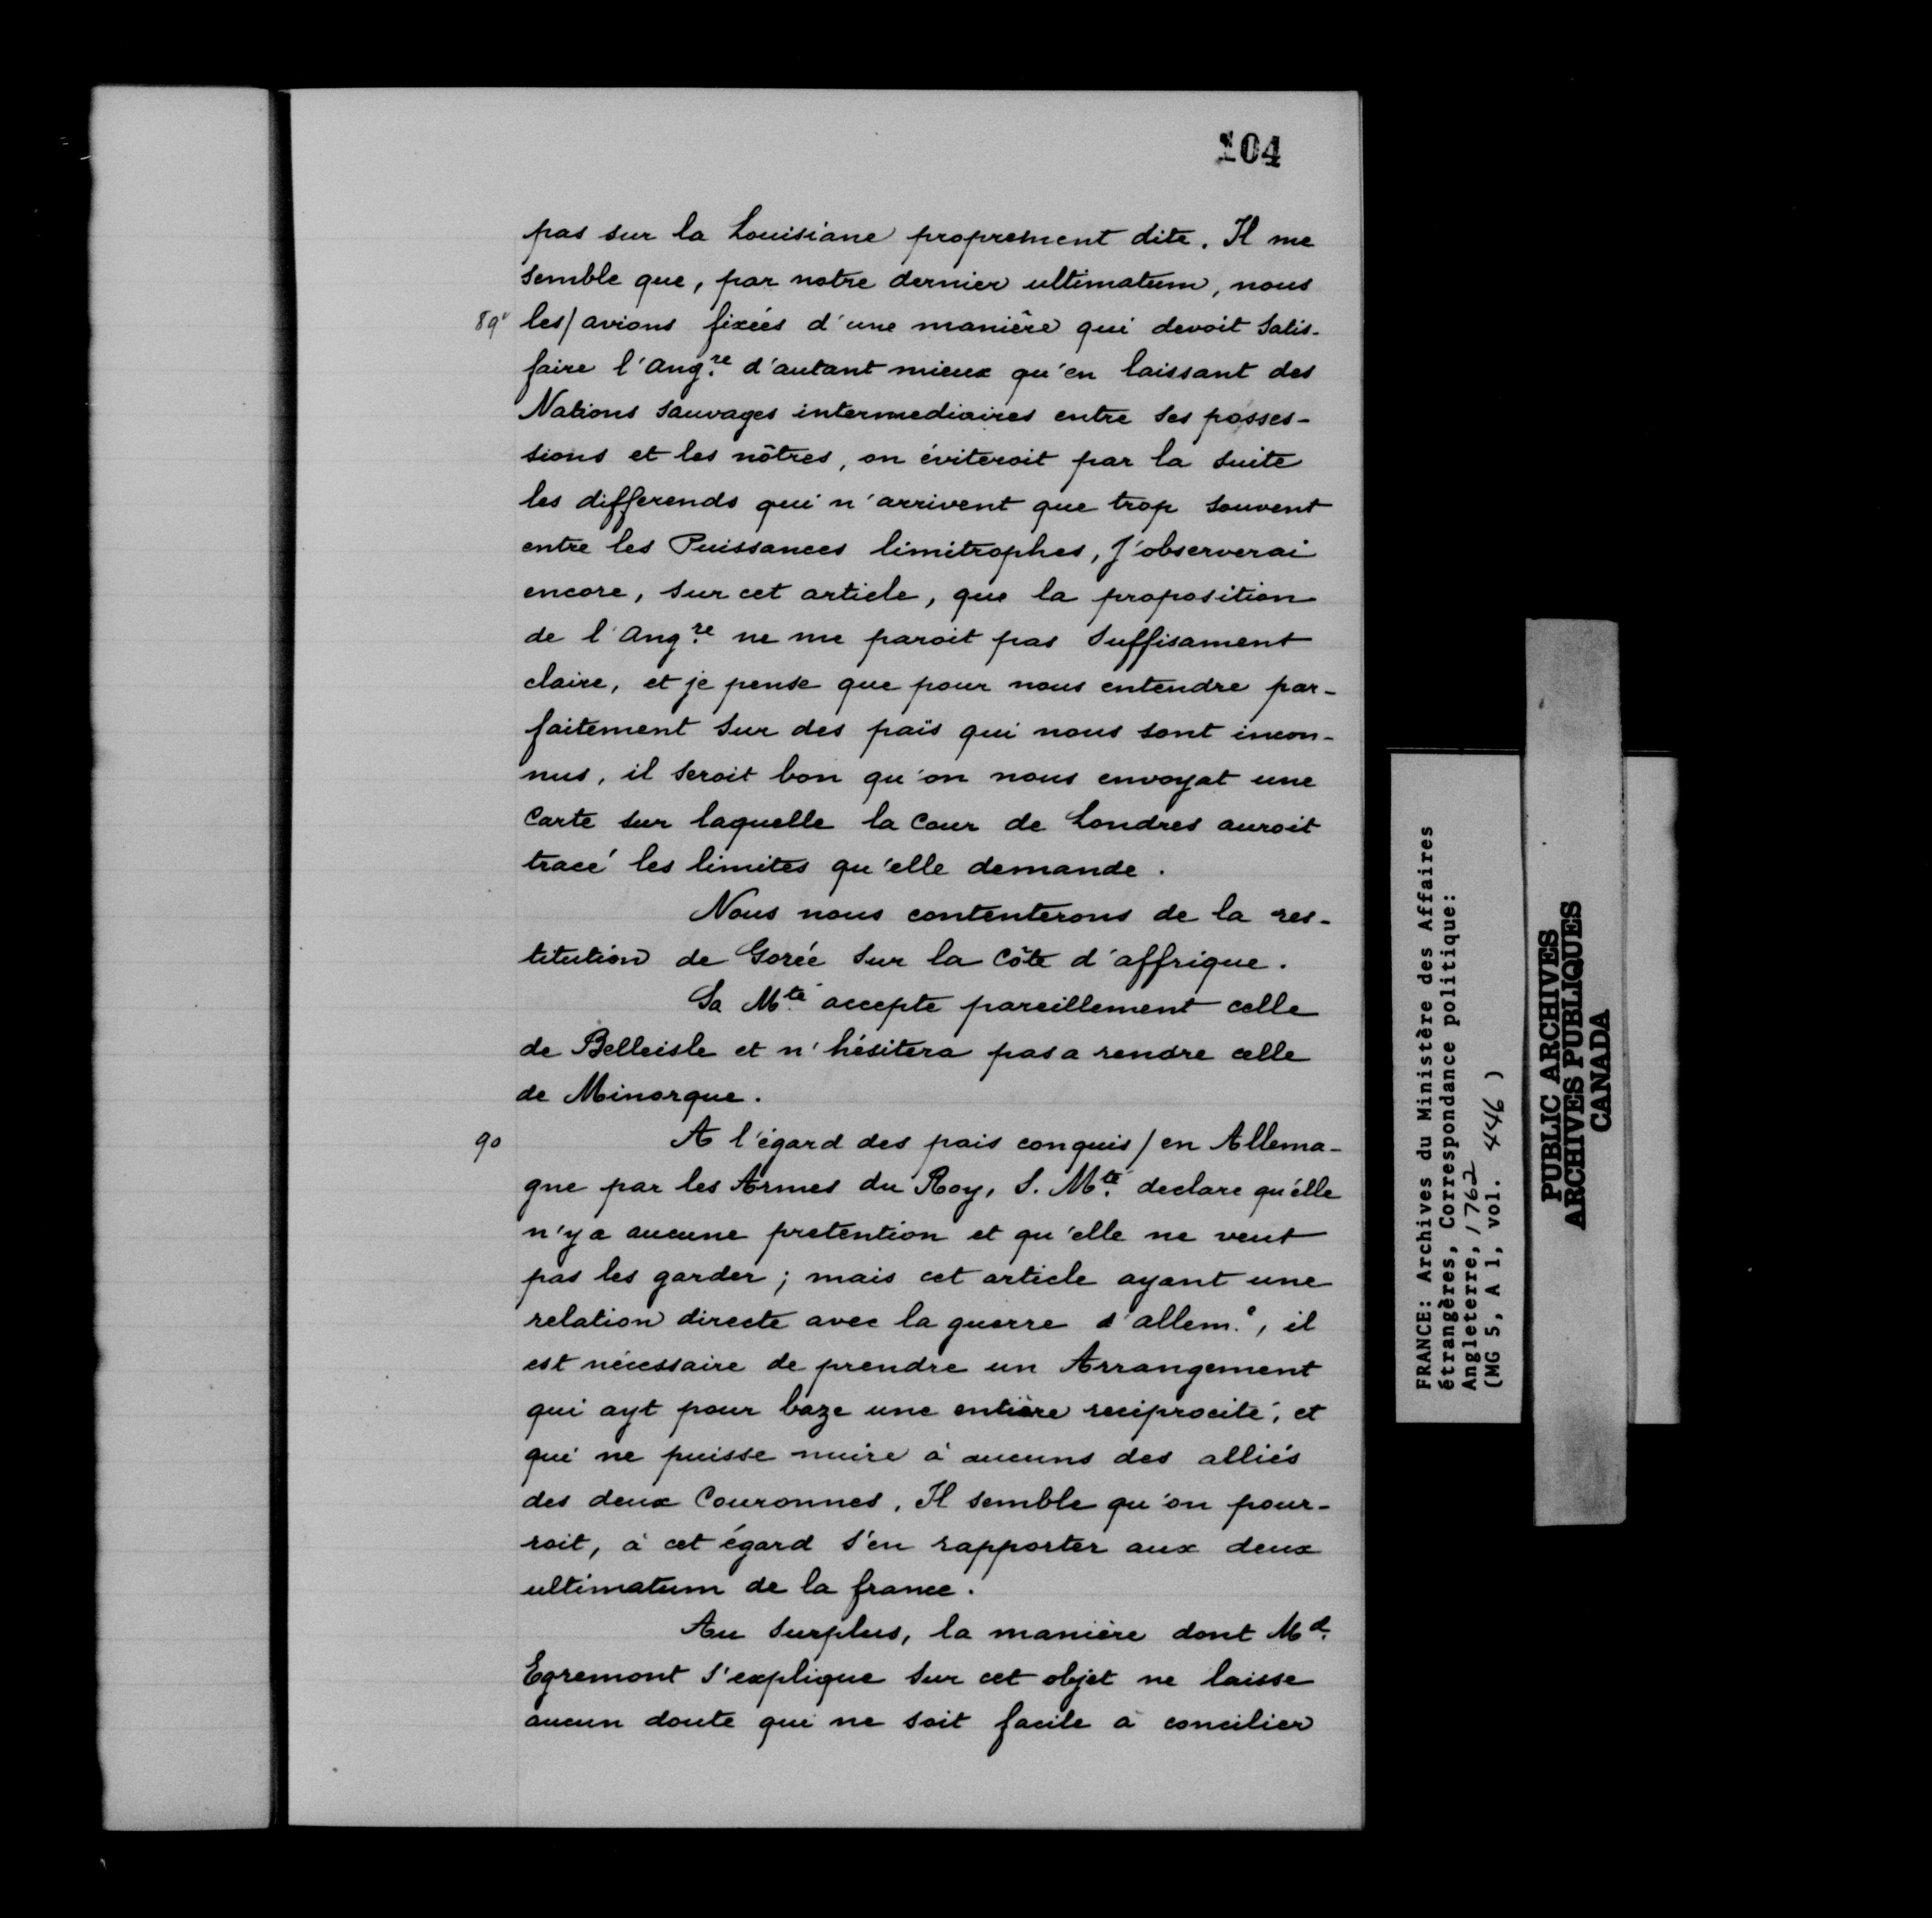 104
pas sur la Louisiane proprement dite. Il me
semble que, par notre dernier ultimatum, nous
89v les/avions fixées d'une manière qui devoit satis-
faire l'Ang.re d'autant mieux qu'en laissant des
Nations sauvages intermediaires entre ses posses-
sions et les nôtres, on éviteroit par la suite
les differends qui n'arrivent que trop souvent
entre les Puissances limitrophes, J'observerai
encore, sur cet article, que la proposition
de l'Ang.re ne me paroit pas suffisament
claire, et je pense que pour nous entendre par-
faitement sur des païs qui nous sont incon-
nus, il seroit bon qu'on nous envoyat une
Carte sur laquelle la Cour de Londres auroit
tracé les limites qu'elle demande.
Nous nous contenterons de la res-
titution de Gorée sur la Côte d'affrique.
Sa M.té accepte pareillement celle
de Belleisle et n'hésitera pas a rendre celle
de Minorque.
90 A l'égard des pais conquis/en Allema-
gne par les Armes du Roy, S. M.té declare qu'elle
n'y a aucune pretention et qu'elle ne veut
pas les garder; mais cet article ayant une
relation directe avec la guerre d'allem.e, il
est nécessaire de prendre un Arrangement
qui ayt pour baze une entière reciprocité, et
qui ne puisse nuire à aucuns des alliés
des deux Couronnes. Il semble qu'on pour-
roit, à cet égard s'en rapporter aux deux
ultimatum de la france.
Au surplus, la manière dont M.d
Egremont s'explique sur cet objet ne laisse
aucun doute qui ne soit facile à concilier
FRANCE: Archives du Ministère des Affaires
étrangères, Correspondance politique:
Angleterre, 1762
(MG 5, A 1, vol. 446 )
PUBLIC ARCHIVES
ARCHIVES PUBLIQUES
CANADA